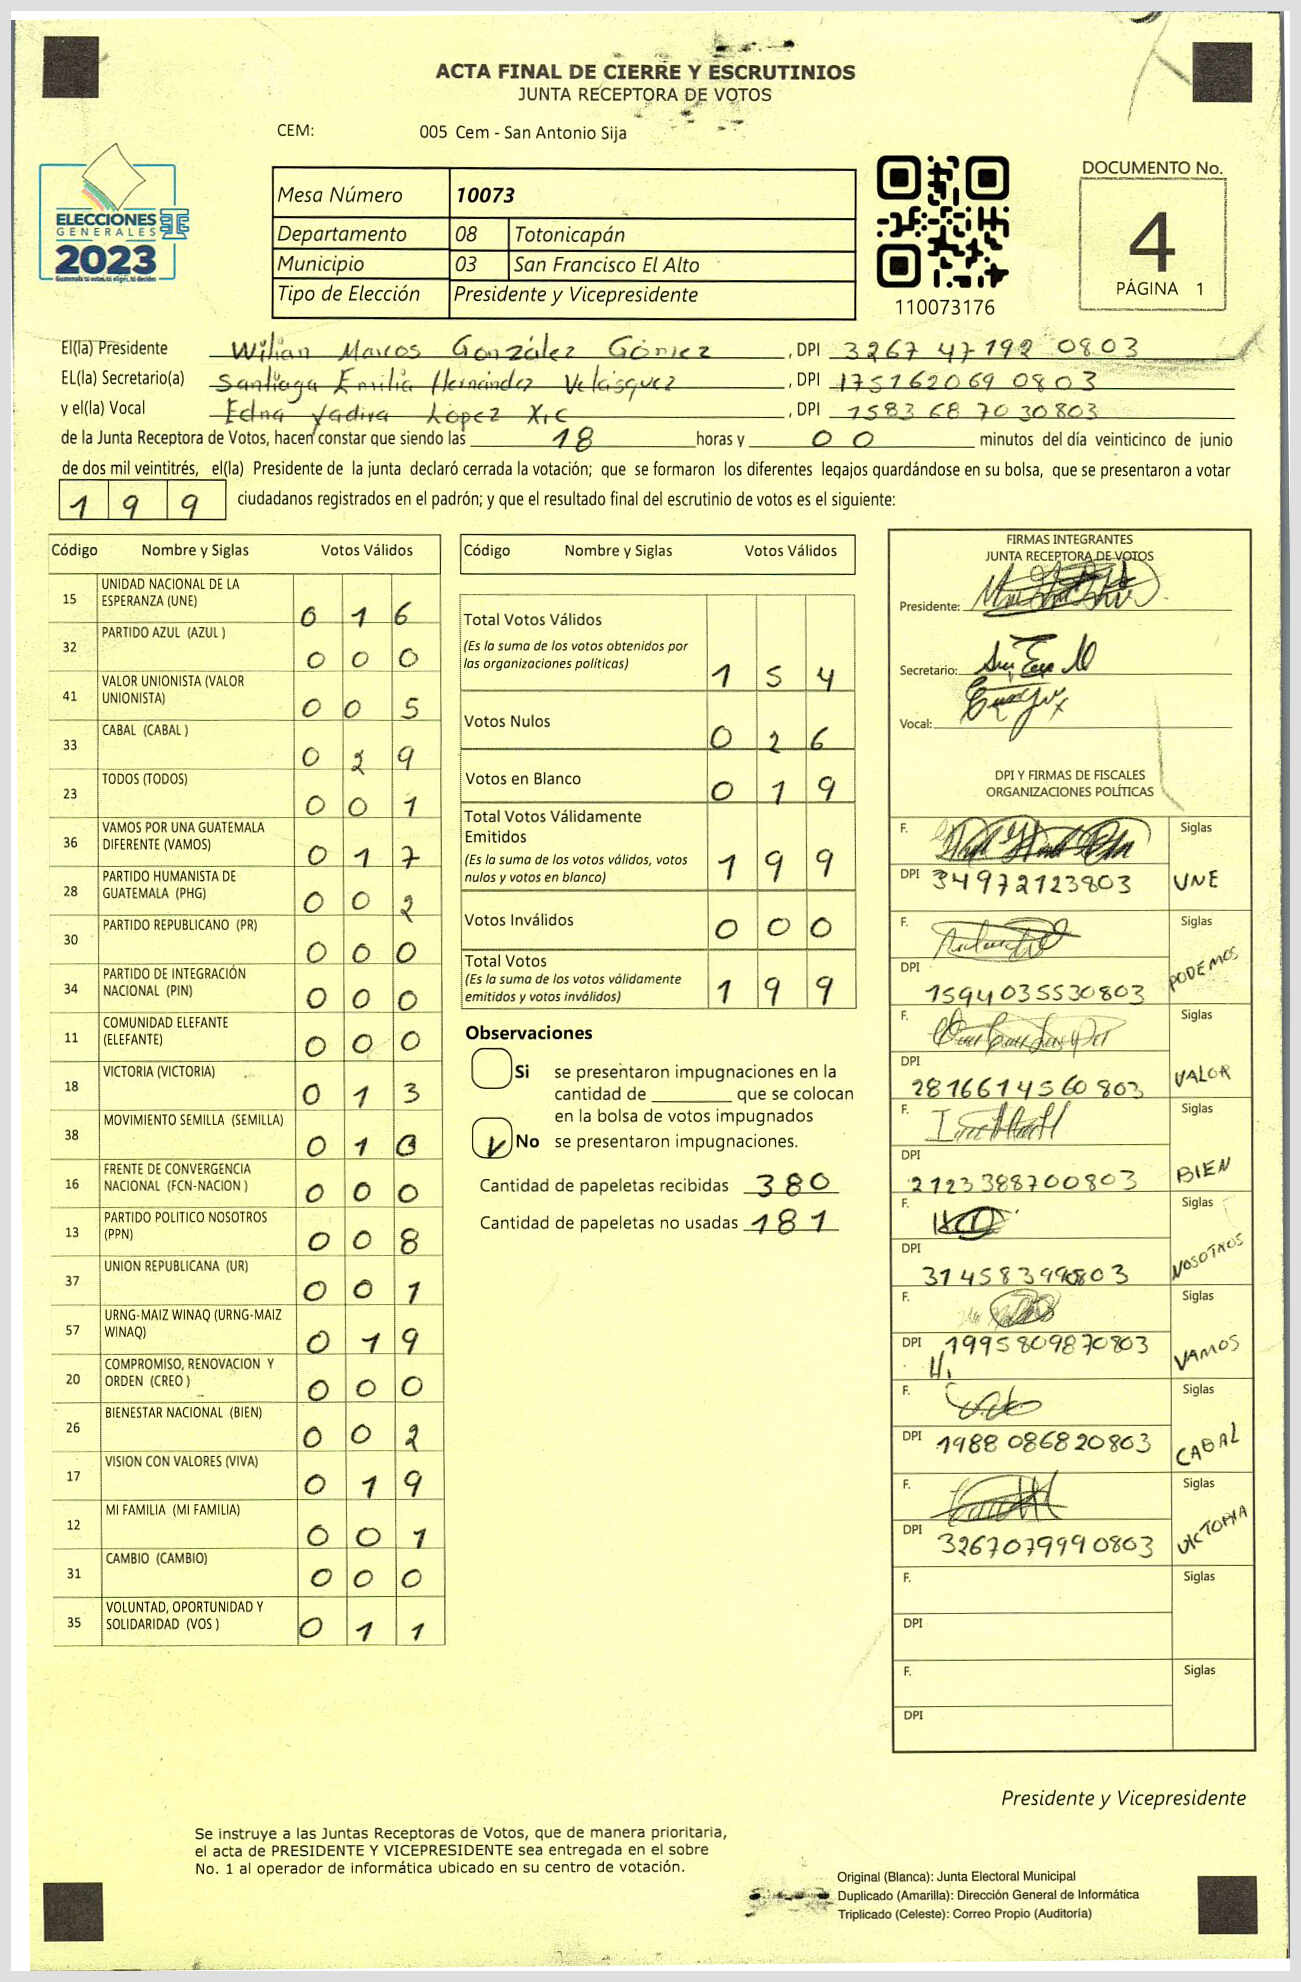 ACTA FINAL DE CIERRE Y ESCRUTINIOS
JUNTA RECEPTORA DE VOTOS
CEM: 005 Cem - San Antonio Sija
ELECCIONES
GENERALES
2023
Mesa Número 10073
Departamento 08 Totonicapán
Municipio 03 San Francisco El Alto
Tipo de Elección Presidente y Vicepresidente
110073176
DOCUMENTO No.
4
PÁGINA 1
El(la) Presidente Wilian Marcos González Gómez, DPI 3267 47192 0803
EL(la) Secretario(a) Santiaga Emilia Hernández Velásquez, DPI 175162069 0803
y el(la) Vocal Edna Yadira López Xic, DPI 1583 68 70 30803
de la Junta Receptora de Votos, hacen constar que siendo las 18 horas y 00 minutos del día veinticinco de junio
de dos mil veintitrés, el(la) Presidente de la junta declaró cerrada la votación; que se formaron los diferentes legajos guardándose en su bolsa, que se presentaron a votar
199 ciudadanos registrados en el padrón; y que el resultado final del escrutinio de votos es el siguiente:
Código Nombre y Siglas Votos Válidos
15 UNIDAD NACIONAL DE LA ESPERANZA (UNE) 016
32 PARTIDO AZUL (AZUL ) 000
41 VALOR UNIONISTA (VALOR UNIONISTA) 005
33 CABAL (CABAL ) 029
23 TODOS (TODOS) 001
36 VAMOS POR UNA GUATEMALA DIFERENTE (VAMOS) 017
28 PARTIDO HUMANISTA DE GUATEMALA (PHG) 002
30 PARTIDO REPUBLICANO (PR) 000
34 PARTIDO DE INTEGRACIÓN NACIONAL (PIN) 000
11 COMUNIDAD ELEFANTE (ELEFANTE) 000
18 VICTORIA (VICTORIA) 013
38 MOVIMIENTO SEMILLA (SEMILLA) 010
16 FRENTE DE CONVERGENCIA NACIONAL (FCN-NACION ) 000
13 PARTIDO POLITICO NOSOTROS (PPN) 008
37 UNION REPUBLICANA (UR) 001
57 URNG-MAIZ WINAQ (URNG-MAIZ WINAQ) 019
20 COMPROMISO, RENOVACION Y ORDEN (CREO ) 000
26 BIENESTAR NACIONAL (BIEN) 002
17 VISION CON VALORES (VIVA) 019
12 MI FAMILIA (MI FAMILIA) 001
31 CAMBIO (CAMBIO) 000
35 VOLUNTAD, OPORTUNIDAD Y SOLIDARIDAD (VOS ) 011
Código Nombre y Siglas Votos Válidos
Total Votos Válidos
(Es la suma de los votos obtenidos por
las organizaciones políticas) 154
Votos Nulos 026
Votos en Blanco 019
Total Votos Válidamente
Emitidos
(Es la suma de los votos válidos, votos
nulos y votos en blanco) 199
Votos Inválidos 000
Total Votos
(Es la suma de los votos válidamente
emitidos y votos inválidos) 199
Observaciones
Si se presentaron impugnaciones en la
cantidad de ________ que se colocan
en la bolsa de votos impugnados
No se presentaron impugnaciones.
Cantidad de papeletas recibidas 380
Cantidad de papeletas no usadas 181
FIRMAS INTEGRANTES
JUNTA RECEPTORA DE VOTOS
Presidente:
Secretario:
Vocal:
DPI Y FIRMAS DE FISCALES
ORGANIZACIONES POLÍTICAS
F. Siglas
DPI 34972123803 UNE
F. Siglas
DPI 1594035530803 PODEMOS
F. Siglas
DPI 2816614560803 VALOR
F. Siglas
DPI 2123388700803 BIEN
F. Siglas
DPI NOSOTROS
F. Siglas
DPI 1995809870803 VAMOS
F. Siglas
DPI 1988086820803 CABAL
F. Siglas
DPI 3267079990803 VICTORIA
F. Siglas
DPI
F. Siglas
DPI
Presidente y Vicepresidente
Se instruye a las Juntas Receptoras de Votos, que de manera prioritaria,
el acta de PRESIDENTE Y VICEPRESIDENTE sea entregada en el sobre
No. 1 al operador de informática ubicado en su centro de votación.
Original (Blanca): Junta Electoral Municipal
Duplicado (Amarilla): Dirección General de Informática
Triplicado (Celeste): Correo Propio (Auditoría)